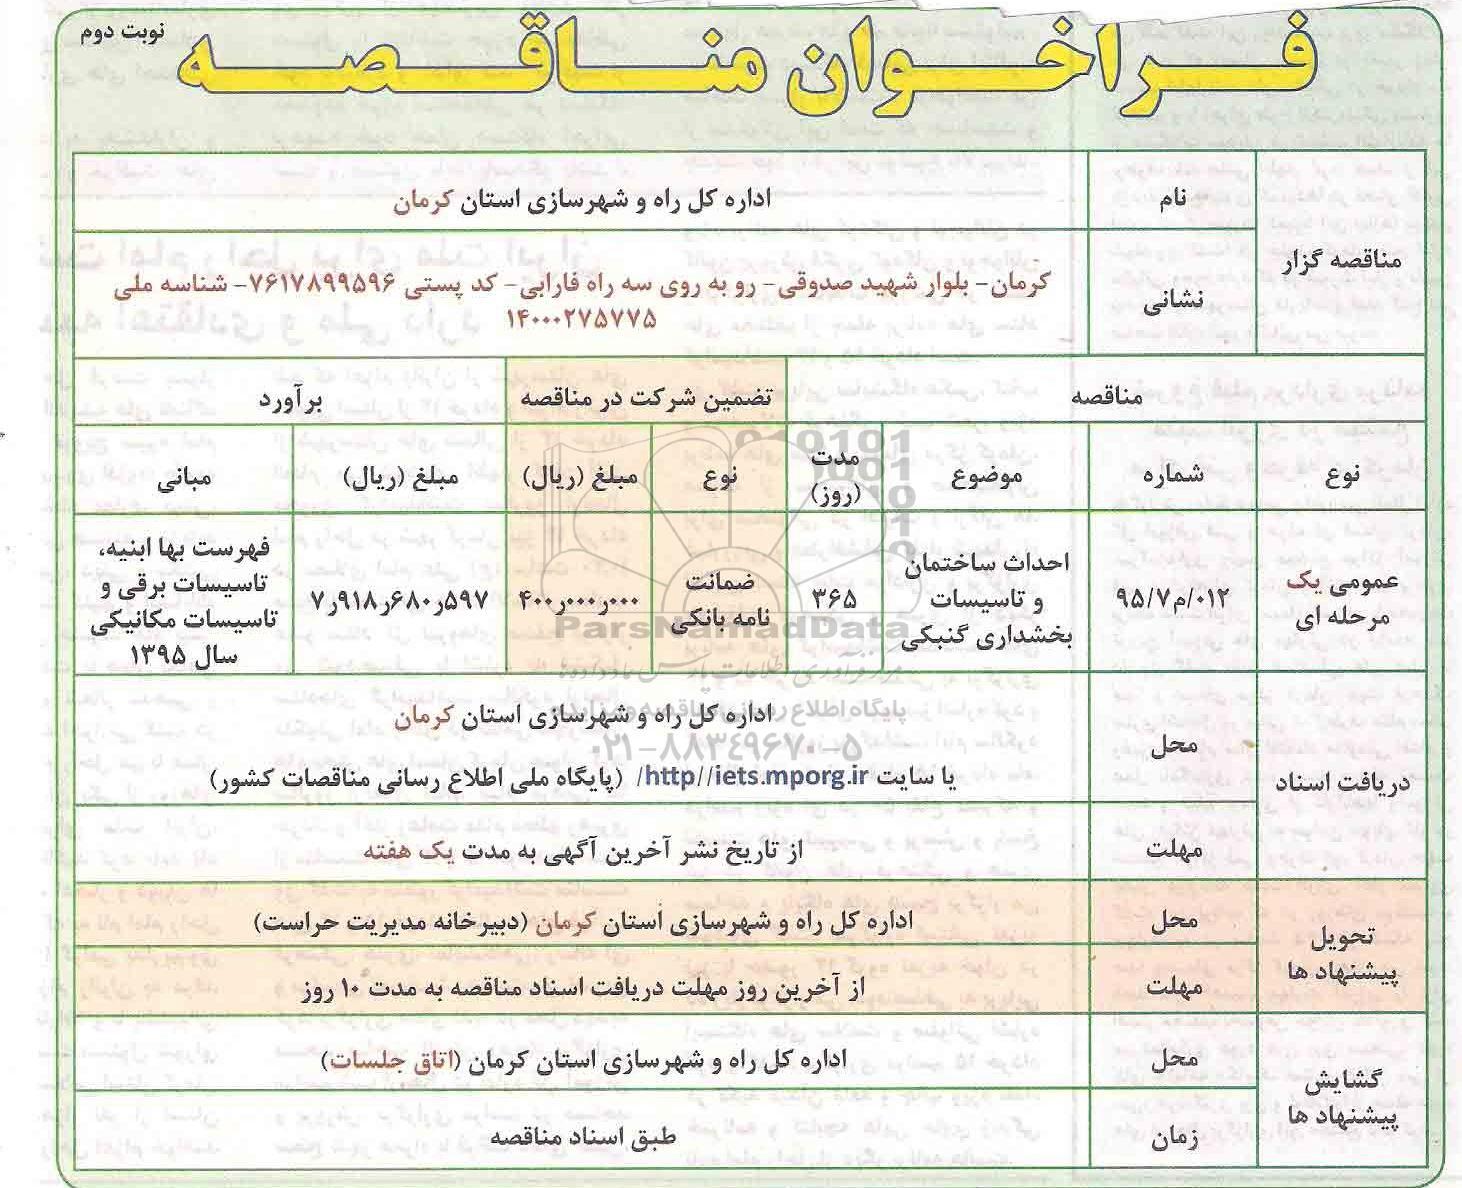 نوبت دوم
فراخوان مناقصه
مناقصه گزار
نام
اداره کل راه و شهرسازی استان کرمان
نشانی
کرمان- بلوار شهید صدوقی- رو به روی سه راه فارابی- کد پستی ۷۶۱۷۸۹۹۵۹۶- شناسه ملی
۱۴۰۰۰۲۷۵۷۷۵
مناقصه
تضمین شرکت در مناقصه
برآورد
نوع
شماره
موضوع
مدت
(روز)
نوع
مبلغ (ریال)
مبلغ (ریال)
مبانی
عمومی یک
مرحله ای
۰۱۲/م/۹۵/۷
احداث ساختمان
و تاسیسات
بخشداری گنبکی
۳۶۵
ضمانت
نامه بانکی
۴۰۰ر۰۰۰ر۰۰۰
۷ر۹۱۸ر۶۸۰ر۵۹۷
فهرست بها ابنیه،
تاسیسات برقی و
تاسیسات مکانیکی
سال ۱۳۹۵
ParsNamadData
پایگاه اطلاع رسانی مناقصه و مزایده
۰۲۱-۸۸۳۴۹۶۷۰-۵
دریافت اسناد
محل
اداره کل راه و شهرسازی استان کرمان
یا سایت http//iets.mporg.ir/ (پایگاه ملی اطلاع رسانی مناقصات کشور)
مهلت
از تاریخ نشر آخرین آگهی به مدت یک هفته
تحویل
پیشنهاد ها
محل
اداره کل راه و شهرسازی استان کرمان (دبیرخانه مدیریت حراست)
مهلت
از آخرین روز مهلت دریافت اسناد مناقصه به مدت ۱۰ روز
گشایش
پیشنهاد ها
محل
اداره کل راه و شهرسازی استان کرمان (اتاق جلسات)
زمان
طبق اسناد مناقصه